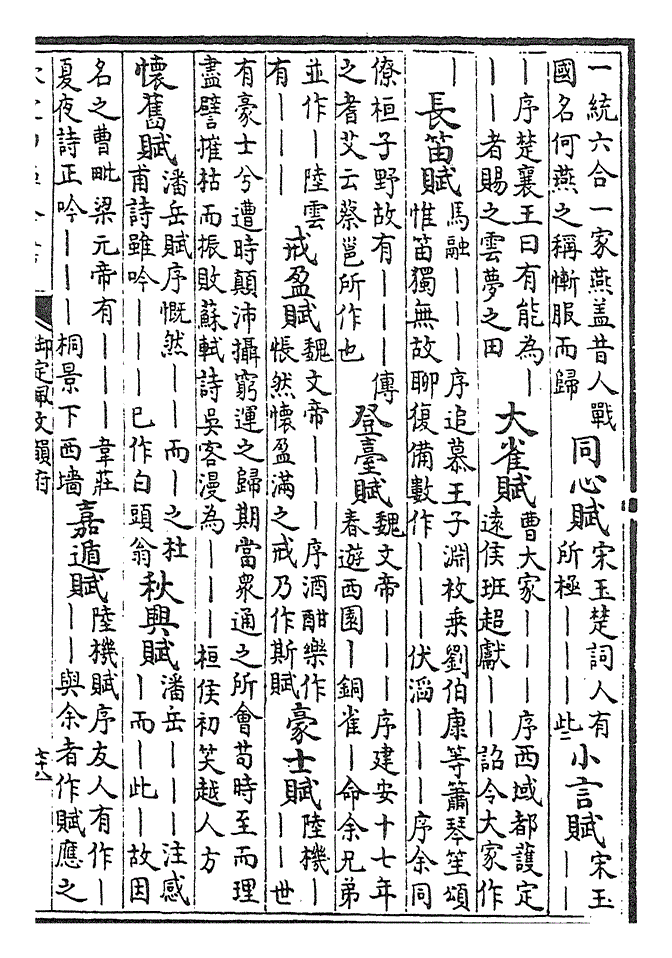 一統六合一家燕盖昔人戰
國名何燕之稱慚服而歸
同心賦
宋玉楚詞人有
所極｜｜｜｜些
小言賦
宋玉
｜｜
｜序楚襄王曰有能為｜
｜｜者賜之雲夢之田
大雀賦
曹大家｜｜｜序西域都護定
遠侯班超獻｜｜詔令大家作
｜
長笛賦
馬融｜｜｜序追慕王子淵枚乗劉伯康等簫琴笙頌
惟笛獨無故聊復備數作｜｜｜伏滔｜｜｜序余同
僚桓子野故有｜｜｜傳
之耆艾云蔡邕所作也
登臺賦
魏文帝｜｜｜序建安十七年
春遊西園｜銅雀｜命余兄弟
並作｜陸雲
有｜｜｜
戒盈賦
魏文帝｜｜｜序酒酣樂作
悵然懷盈滿之戒乃作斯賦
豪士賦
陸機｜
｜｜世
有豪士兮遭時顛沛攝窮運之歸期當衆通之所會苟時至而理
盡譬摧枯而振敗蘇軾詩吳客漫為｜｜｜桓侯初笑越人方
懷舊賦
潘岳賦序慨然｜｜而｜之杜
甫詩雖吟｜｜｜｜已作白頭翁
秋興賦
潘岳｜｜｜注感
｜而｜此｜故因
名之曹毗梁元帝有｜｜｜韋莊
夏夜詩正吟｜｜｜桐景下西墻
嘉遁賦
陸機賦序友人有作｜
｜｜與余者作賦應之
御定佩文韻府